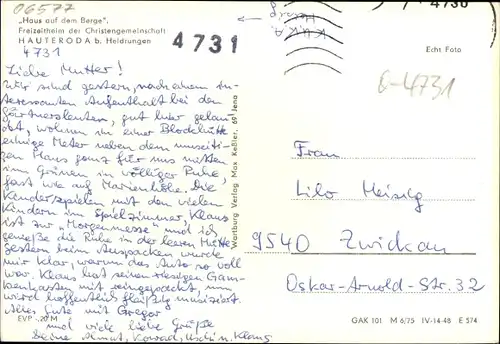 06577
„Haus auf dem Berge",
Freizeitheim der Christengemeinschaft
HAUTERODA b. Heldrungen
4731
4731
4730
Echt Foto
6-4731
Liebe Mutter!
Wir sind gestern, nach einem in-
teressanten Aufenthalt bei den
Gärtnersleuten, gut hier gelan-
det, wohnen in einer Blockhütte
einige Meter neben dem umseiti-
gen Haus ganz für uns mitten
im Grünen in völliger Ruhe,
fast wie auf Marienhöhe. Die
Kinder spielen mit den vielen
Kindern im Spielzimmer, Klaus
ist zur „Morgenmesse" und ich
genieße die Ruhe in der leeren Hütte.
Gestern beim Auspacken wurde
mir klar, warum das Auto so voll
war. Klaus hat seinen riesigen Gam-
benkasten mit reingepackt, nun
wird hoffentlich fleißig musiziert.
Alles Gute mit Gregor
und viele liebe Grüße
Deine Almut, Konrad, u. Klaus
Wartburg Verlag Max Keßler, 69 Jena
Frau
Lilo Heisig
9540 Zwickau
Oskar-Arnold-Str. 32
EVP -,20 M
GAK 101 M 6/75 IV-14-48 E 574